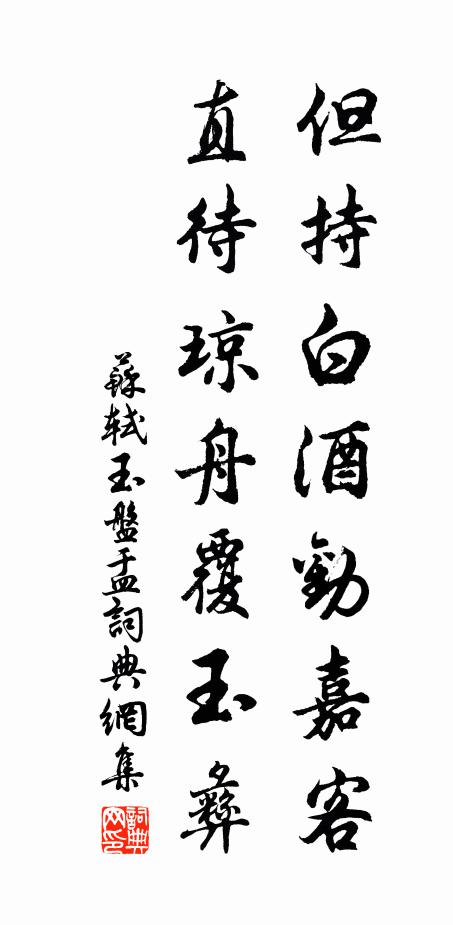 但持白酒勸嘉客
直待琼舟覆玉彝
蘇軾玉盤盂詞典網集
詞典網印